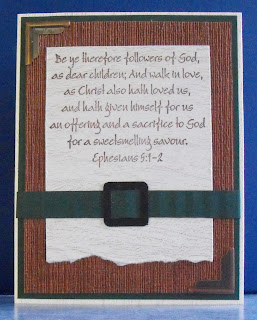 Be ye therefore followers of God,
as dear children; And walk in love,
as Christ also hath loved us,
and hath given himself for us
an offering and a sacrifice to God
for a sweetsmelling savour.
Ephesians 5:1-2